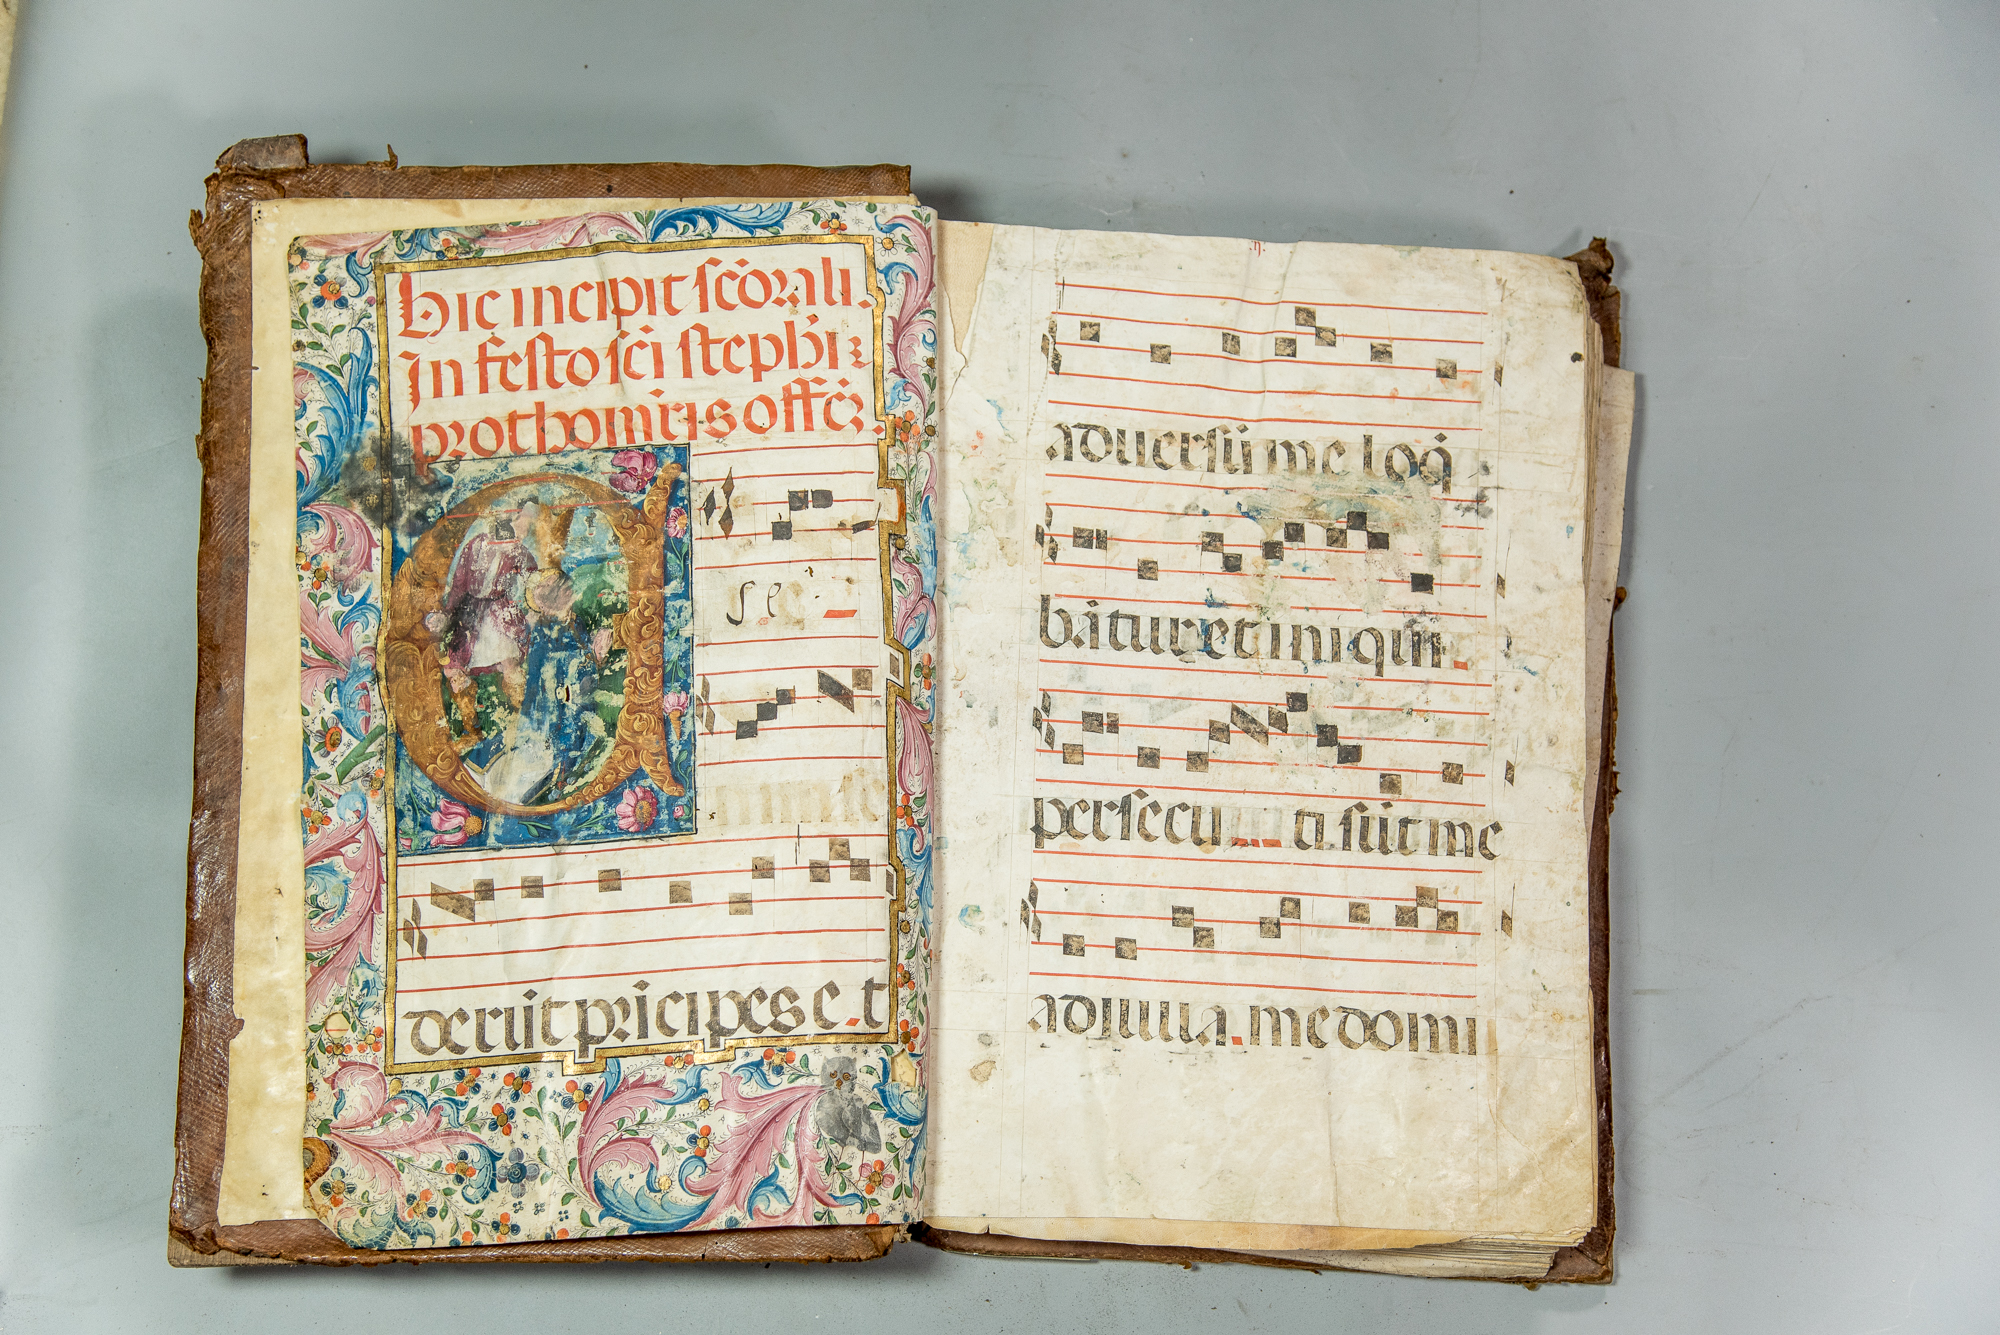 hic incipit sc̄oꝛali.
In festo sc̄i steph̄i ⁊
prothom̄ris offc̄ꝫ.
se
derūt prīcipes e.t
.ij.
aduersū me loq̄
bātur et iniqui.
persecu ti sūt me
adiuua. me domi